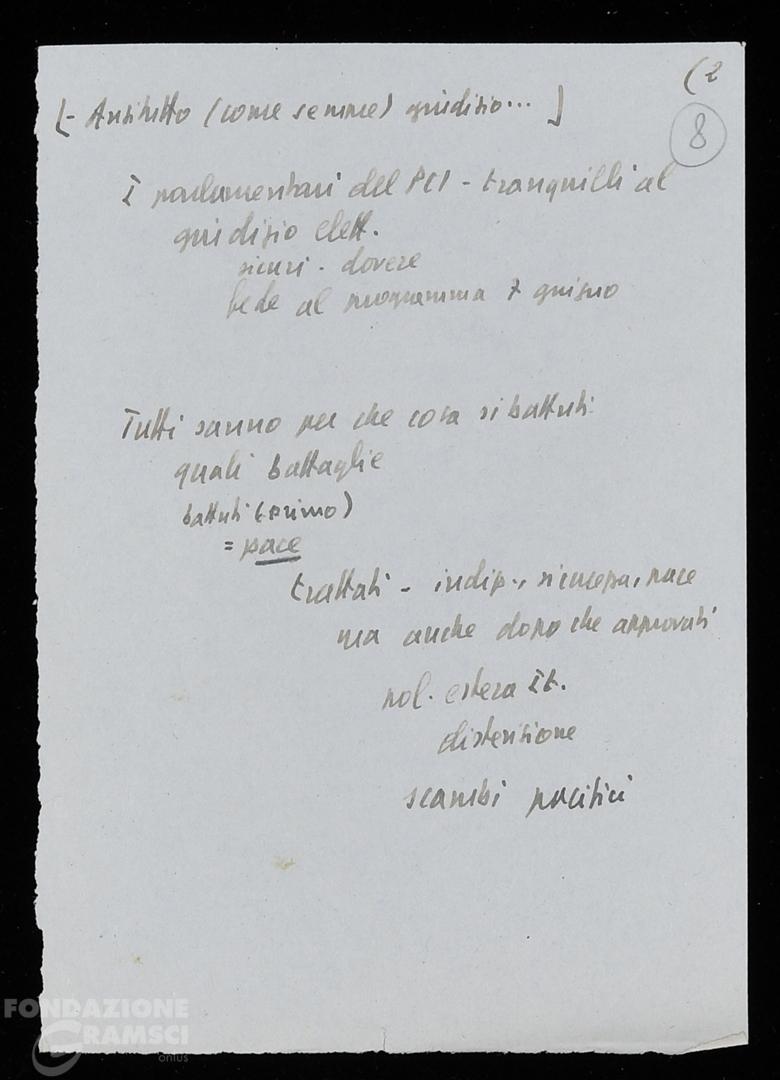 (2
8
[- Anzitutto (come sempre) giudizio... ]
I parlamentari del PCI - tranquilli al
giudizio elett.
sicuri - dovere
fede al programma 7 giugno
Tutti sanno per che cosa si battuti
quali battaglie
battuti (primo)
= pace
trattati - indip., sicurezza, pace
ma anche dopo che approvati
pol. estera It.
distensione
scambi pacifici
FONDAZIONE
GRAMSCI
onlus